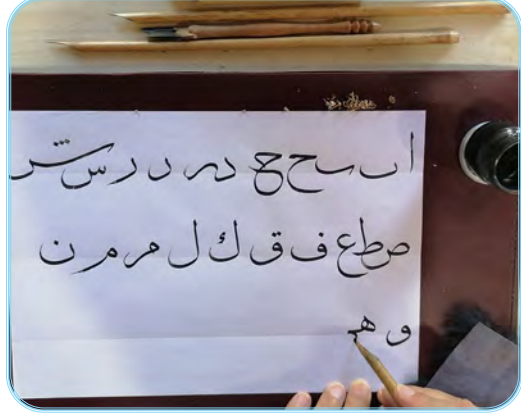 ا ٮ ح ح د د ر س ش
ص ط ع ف ق ك ل م م ن
و ه